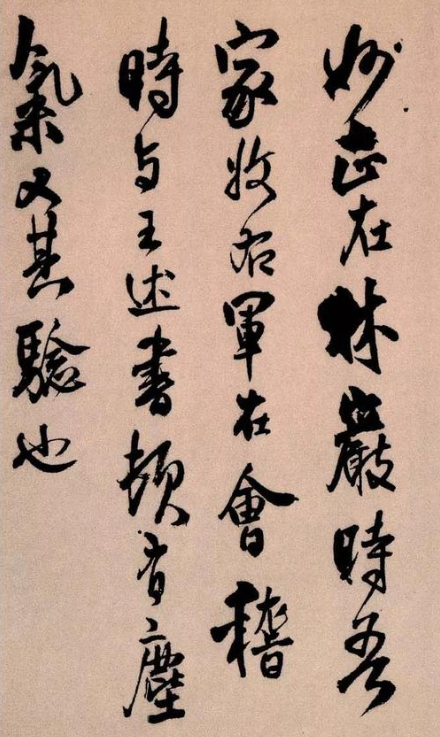 妙正在林巖時吾
家收右軍在會稽
時与王述書頓有塵
氣又其驗也